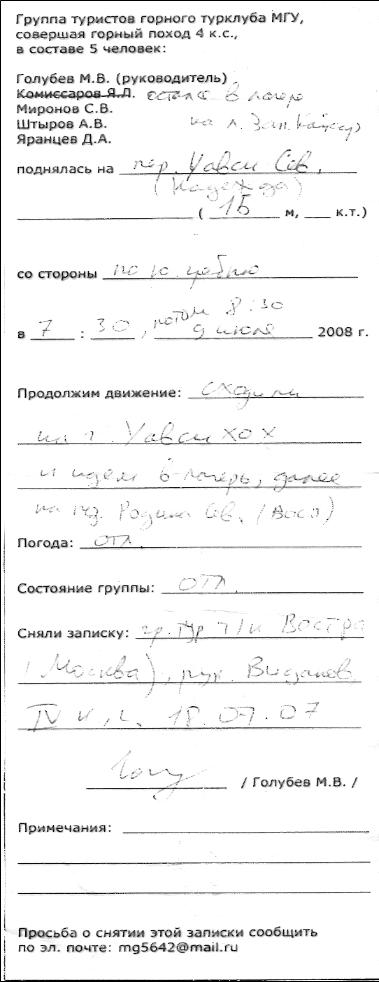 Группа туристов горного турклуба МГУ,
совершая горный поход 4 к.с.,
в составе 5 человек:
Голубев М.В. (руководитель)
Комиссаров Я.Л. остался в лагере
Миронов С.В.
Штыров А.В. на л. Зап.
Яранцев Д.А.
поднялась на пер. Уавси Сев.
(Надежда)
( 1Б м, к.т.)
со стороны по ю. гребню
в 7 : 30 , потом 8:30
9 июля 2008 г.
Продолжим движение: сходили
на г. Уавси хох
и идем в лагерь, далее
на Родина Сев.
Погода: отл.
Состояние группы: отл.
Сняли записку: гр. тур т/к
(Москва), рук.
IV к.с. 18.07.07
/ Голубев М.В. /
Примечания:
Просьба о снятии этой записки сообщить
по эл. почте: mg5642@mail.ru